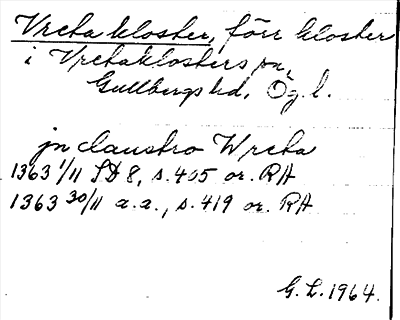 Vreta kloster, förr kloster
i Vretaklosters sn,
Gullbergs hd, Ög. l.
jn claustro Wreta
1363 1/11 SD 8, s. 405 or. RA
1363 30/11 a.a., s. 419 or. RA
G. L. 1964.